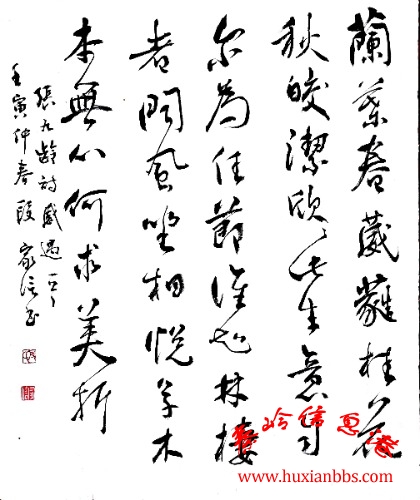 蘭葉春葳蕤桂花
秋皎潔欣〻此生意自
尔為佳節誰知林棲
者聞風坐相悅草木
本無心何求美折
張九齡詩感遇一首
壬寅仲春段家信書
www.huxianbbs.com